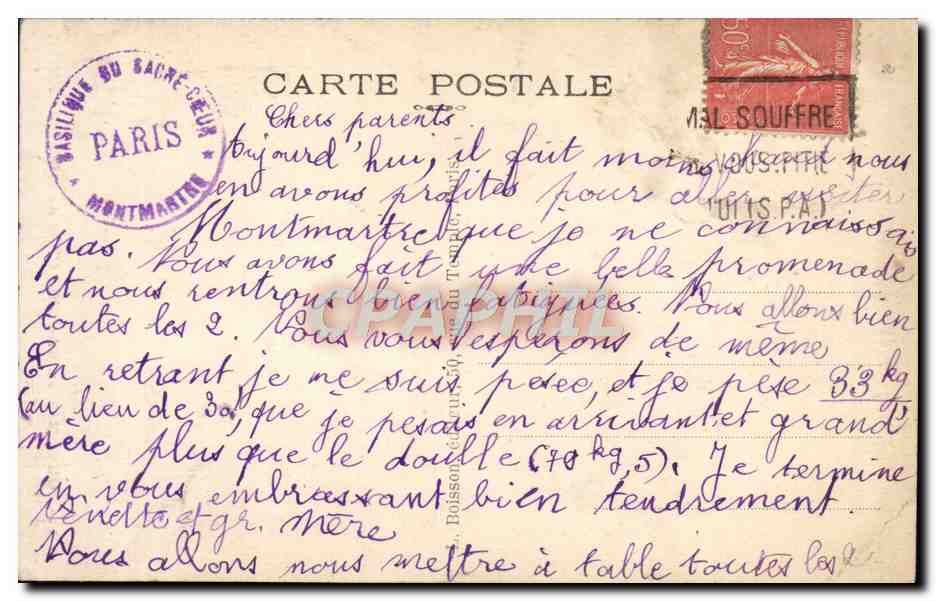 CARTE POSTALE
BASILIQUE DU SACRÉ-CŒUR
PARIS
MONTMARTRE
50c
RÉPUBLIQUE FRANÇAISE
MAL SOUFFRE
VOUS.PITIÉ
(S.P.A.)
Chers parents
Aujourd'hui, il fait moins chaud nous
en avons profités pour aller visiter
Montmartre que je ne connaissais
pas. Nous avons fait une belle promenade
et nous rentrons bien fatiguées. Nous allons bien
toutes les 2. Nous vous esperons de même
En retrant je me suis pesée, et je pèse 33 kg
(au lieu de 30, que je pesais en arrivant et grand'
mère plus que le doulle (70 kg,5). Je termine
en vous embrassant bien tendrement.
et gr. Mère
Nous allons nous mettre à table toutes les 2
L. Boisson, éditeur, 50, rue du Temple, Paris
CPAPHIL